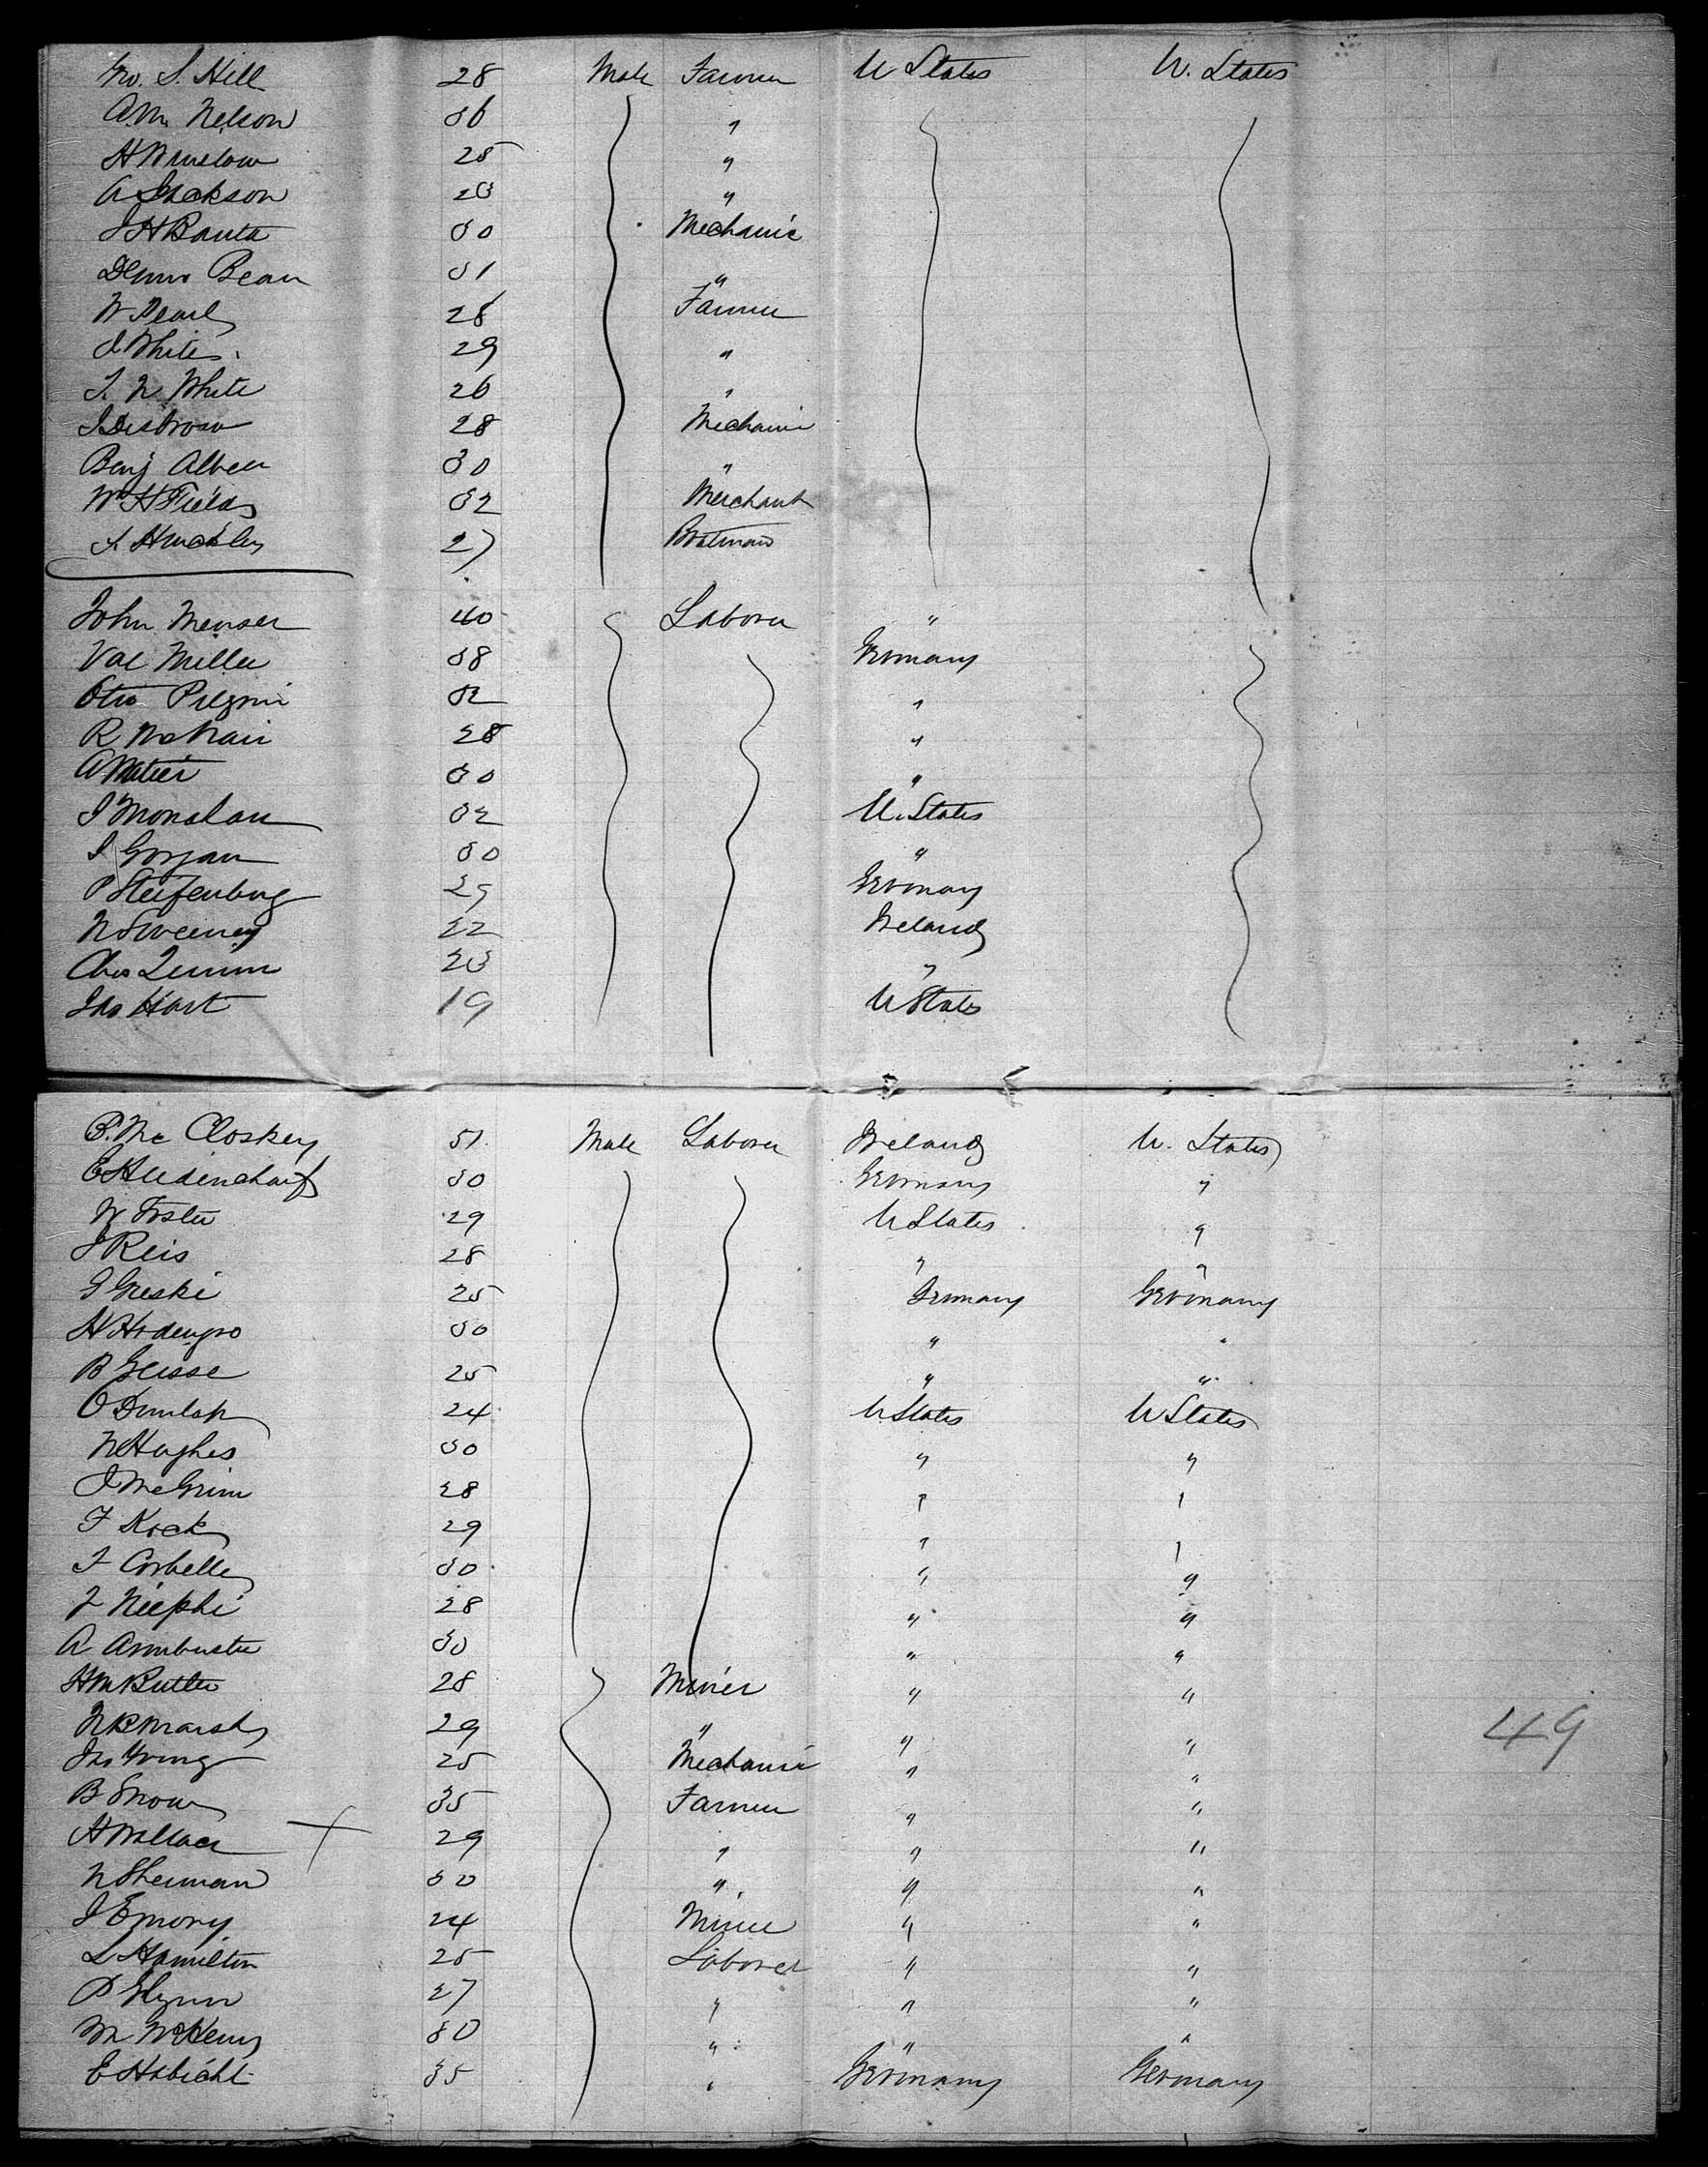 Geo. S. Hill 28 Male Farmer U States U. States
A.M. Nelson 36 "
H Winslow 25 "
A Jackson 23 "
J H Banta 30 Mechanic
Bean 31 "
W Pearl 28 Farmer
J White 29 "
T. N. White 26 "
J Disbrow 28 Mechanic
Benj Albeer 30 "
Wm H Fields 32 Merchant
S. Huckley 27 Boatman
John Menser 40 Laborer "
Val Miller 38 Germany
Otto Pilgrim 32 "
R McNair 28 "
A Matier 30 "
J Monahan 32 U. States
J Gorjan 30 "
P Steifenburg 29 Germany
N Sweeney 22 Ireland
Chas Quinn 23 "
Jno Hart 19 U States
P. Mc Closkey 51 Male Laborer Ireland U. States
E Heidencharf 30 Germany "
W Foster 29 U States "
J Reis 28 " "
J Greski 25 Germany Germany
H Hodengro 30 " "
B Geisse 25 " "
O Dunlap 24 U States U States
N Hughes 30 " "
J McGrim 28 " "
F Kock 29 " "
F Corbelle 30 " "
J Niephi 28 " "
A Armbuster 30 " "
HM Butler 28 Miner " "
N R Marsh 29 " " "
Jno Young 25 Mechanic " "
B Snow 35 Farmer " "
H Wallace 29 " " "
N Sherman 30 " " "
49
J Emory 24 Miner " "
L Hamilton 25 Laborer " "
P Glynn 27 " " "
M McHenry 30 " " "
E Habicht 35 " Germany Germany